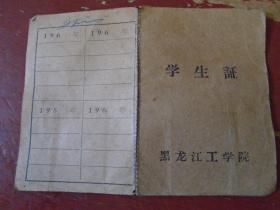 196 年 196 年
196 年 196 年
学生証
黑龙江工学院